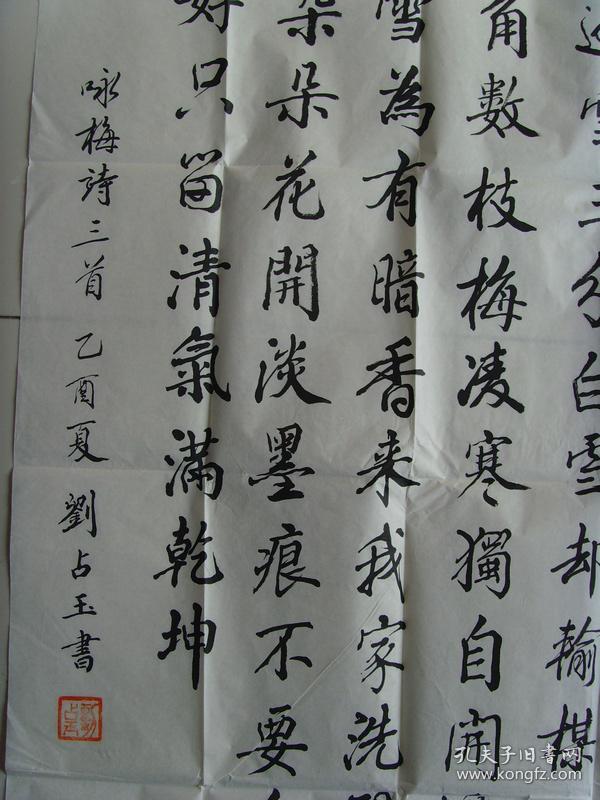 雪三分白雪却輸楳
角數枝梅凌寒獨自開
雪為有暗香来我家洗
朵朵花開淡墨痕不要
好只留清氣滿乾坤
咏梅詩三首 乙酉夏 劉占玉書
孔夫子旧书网
www.kongfz.com